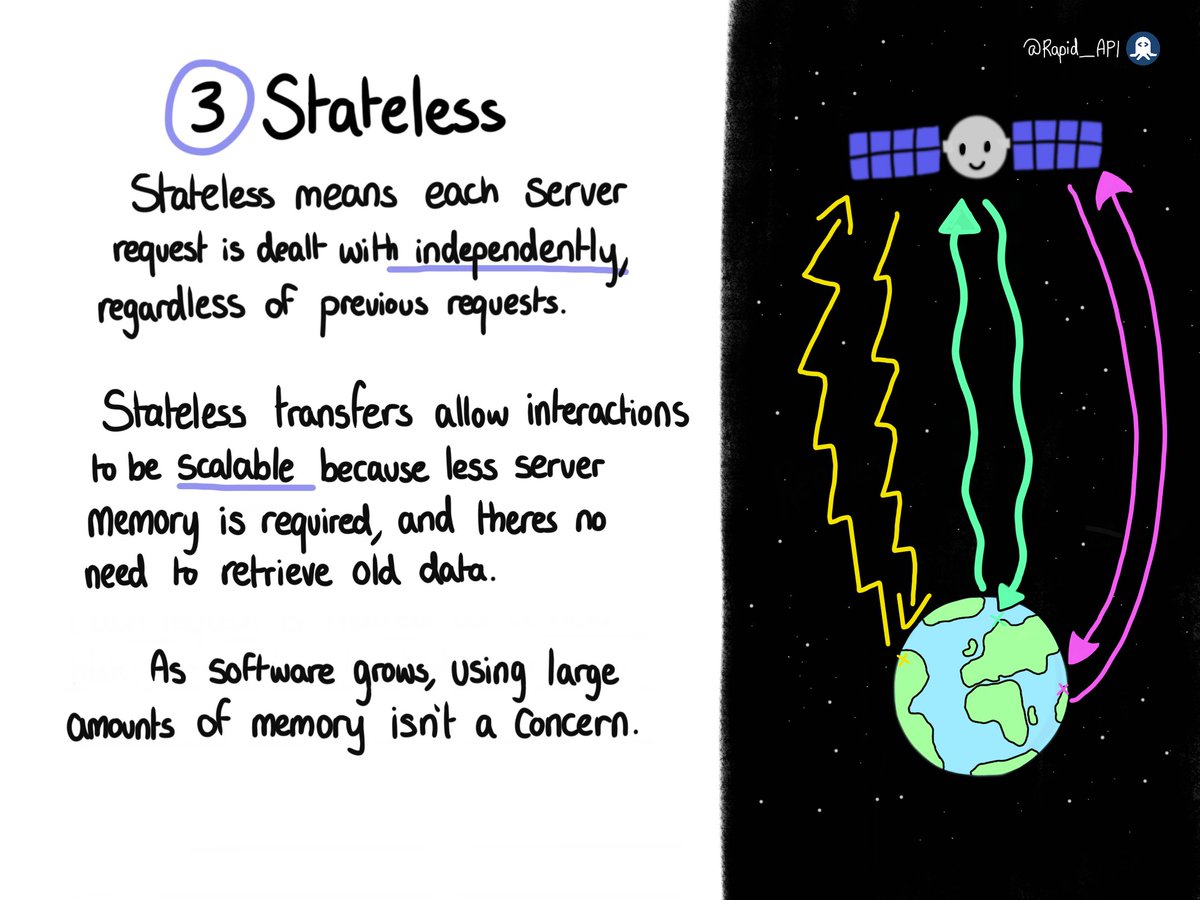 3 Stateless
Stateless means each server
request is dealt with independently,
regardless of previous requests.
Stateless transfers allow interactions
to be scalable because less server
memory is required, and theres no
need to retrieve old data.
As software grows, using large
amounts of memory isn't a concern.
@Rapid_API